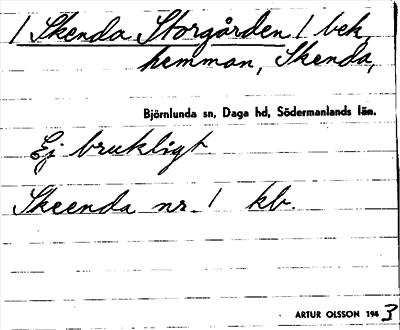 1 Skenda Storgården / bek.
hemman, Skenda,
Björnlunda sn, Daga hd, Södermanlands län.
Ej brukligt
Skeenda nr. 1 kb.
ARTUR OLSSON 1943